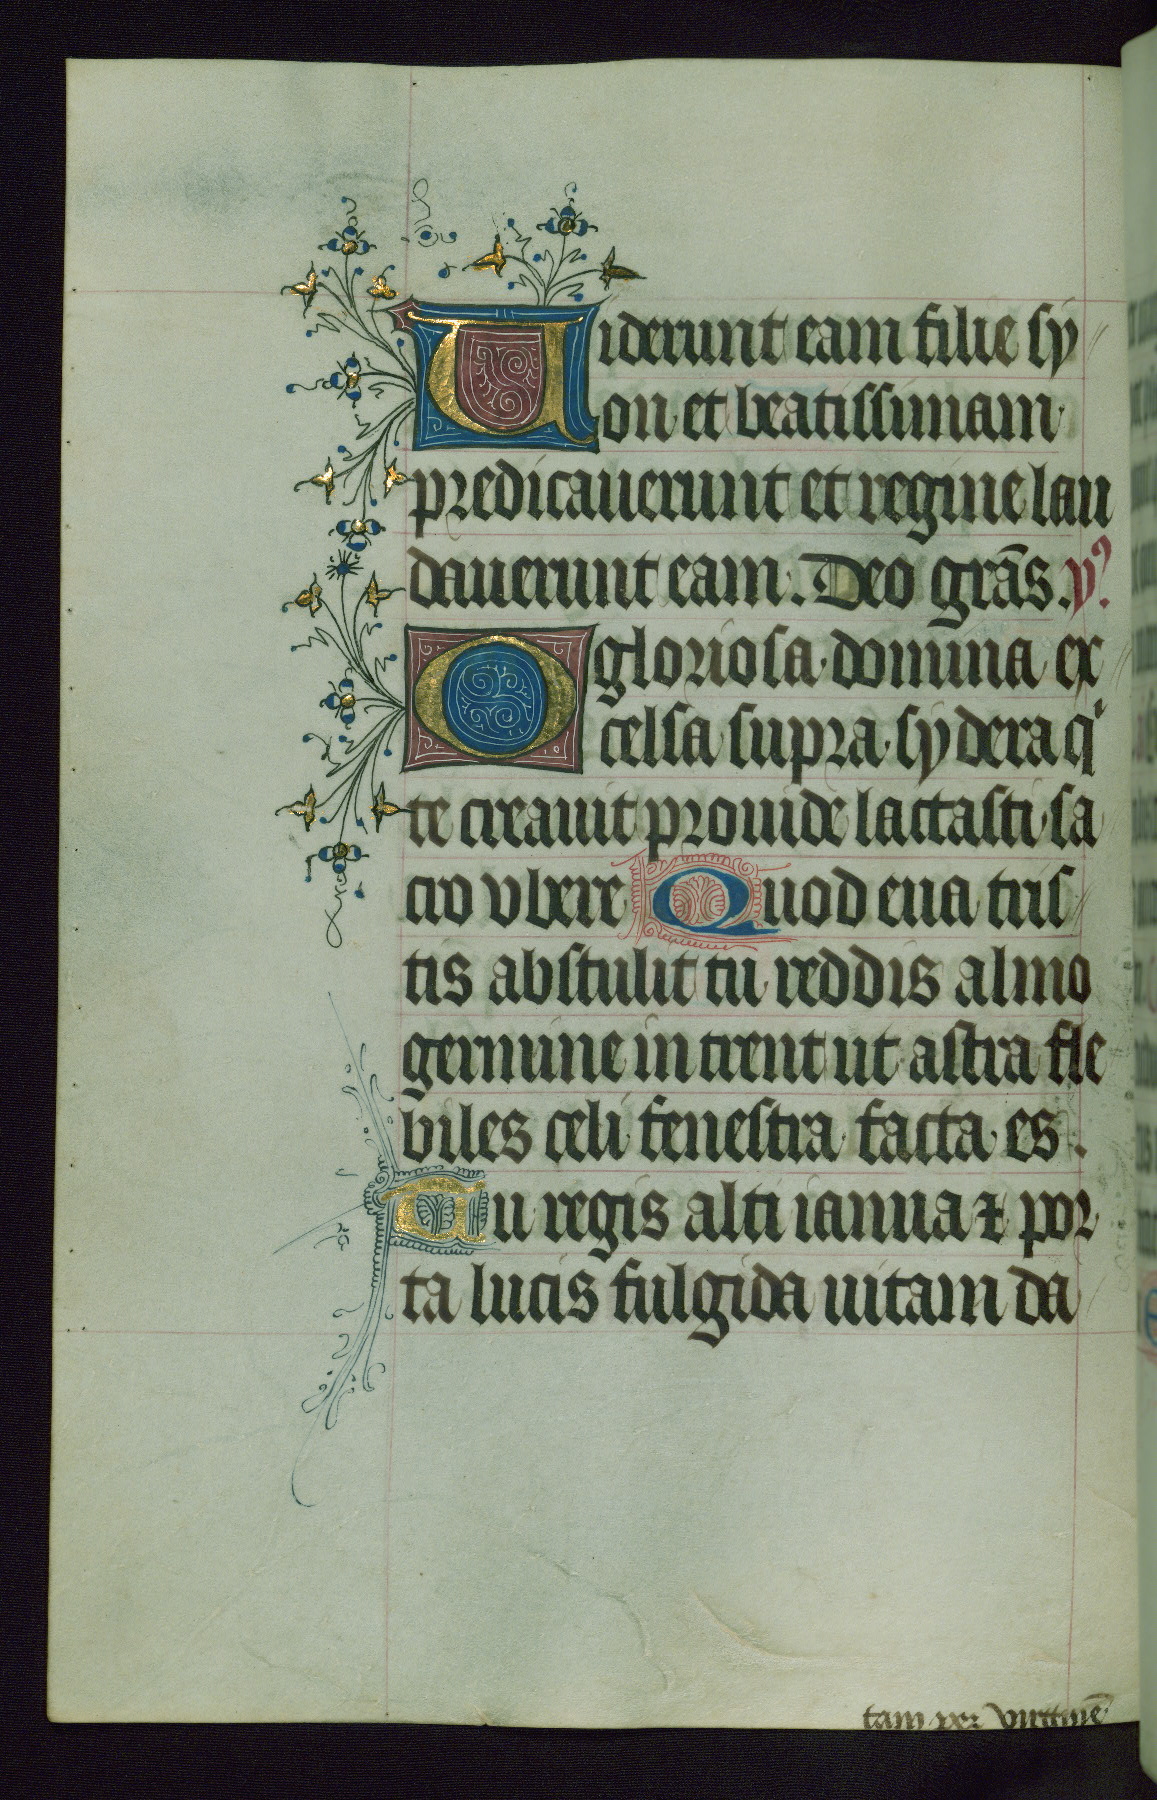 Uiderunt eam filie sy
on et beatissimam
predicauerunt et regine lau
dauerunt eam. Deo grās. v̉.
O gloriosa domina ex
celsa supra sydera qͥ
te creauit prouide lactasti sa
cro vbere Quod eua tris
tis abstulit tu reddis almo
germine intrent ut astra fle
biles celi fenestra facta es.
Tu regis alti ianua ⁊ por
ta lucis fulgida uitam da
tam per virginē